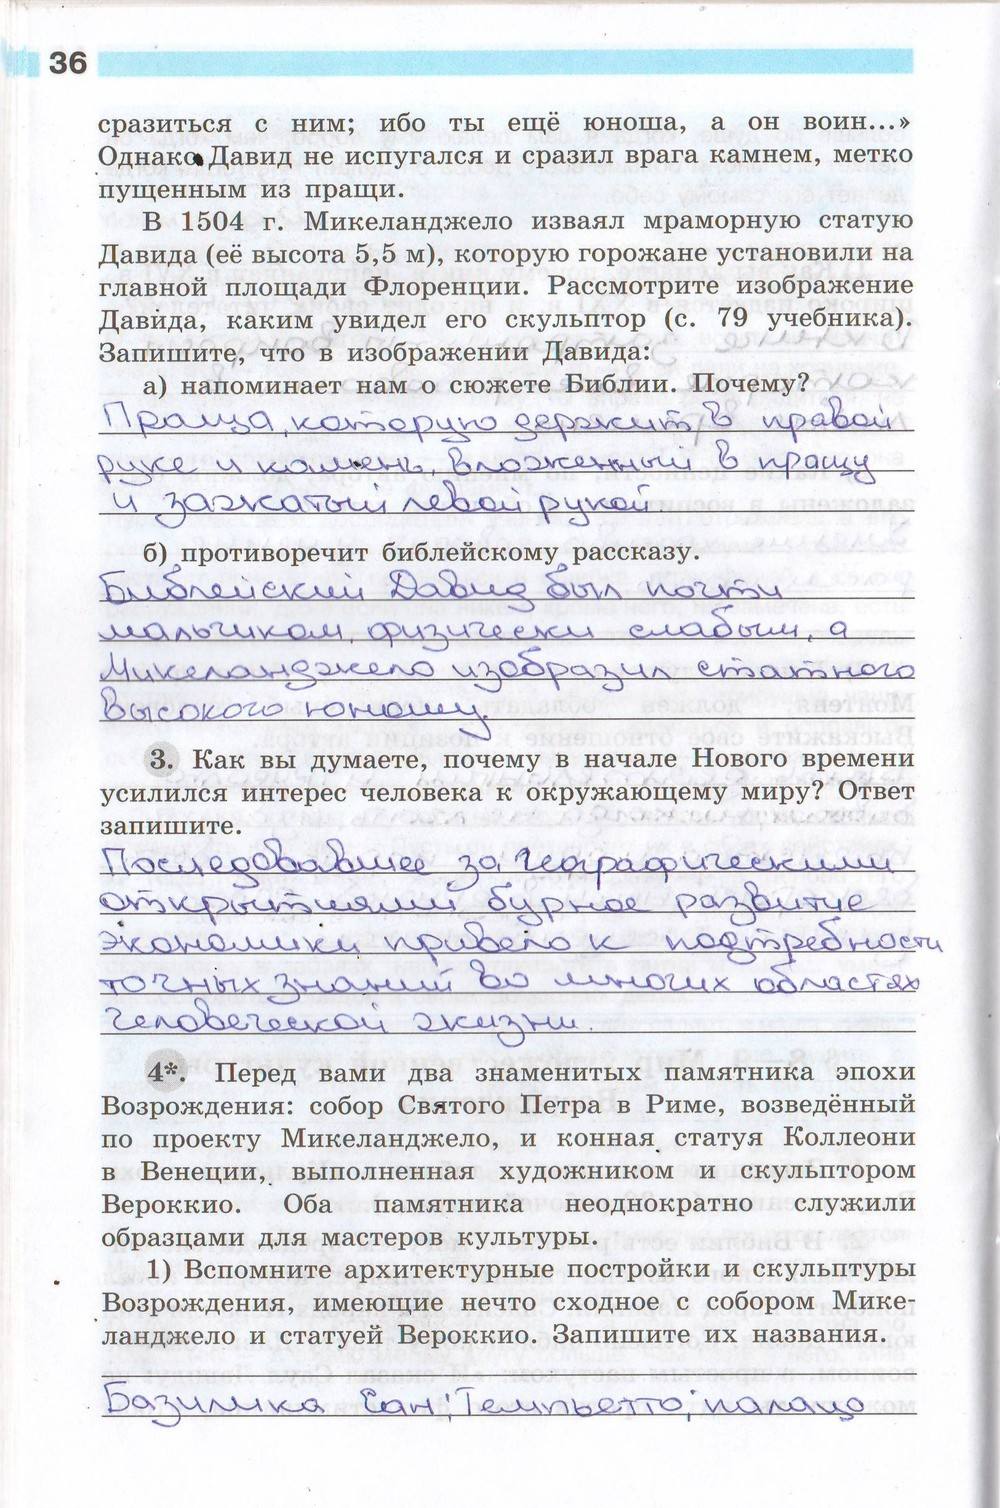 36
сразиться с ним; ибо ты ещё юноша, а он воин...»
Однако Давид не испугался и сразил врага камнем, метко
пущенным из пращи.
В 1504 г. Микеланджело изваял мраморную статую
Давида (её высота 5,5 м), которую горожане установили на
главной площади Флоренции. Рассмотрите изображение
Давида, каким увидел его скульптор (с. 79 учебника).
Запишите, что в изображении Давида:
а) напоминает нам о сюжете Библии. Почему?
Праща, которую держит в правой
руке и камень, вложенный в пращу
и зажатый левой рукой
б) противоречит библейскому рассказу.
Библейский Давид был почти
мальчиком, физически слабым, а
Микеланджело изобразил статного
высокого юношу.
3. Как вы думаете, почему в начале Нового времени
усилился интерес человека к окружающему миру? Ответ
запишите.
Последовавшее за географическими
открытиями бурное развитие
экономики привело к подтребности
точных знаний во многих областях
человеческой жизни.
4*. Перед вами два знаменитых памятника эпохи
Возрождения: собор Святого Петра в Риме, возведённый
по проекту Микеланджело, и конная статуя Коллеони
в Венеции, выполненная художником и скульптором
Вероккио. Оба памятника неоднократно служили
образцами для мастеров культуры.
1) Вспомните архитектурные постройки и скульптуры
Возрождения, имеющие нечто сходное с собором Мике-
ланджело и статуей Вероккио. Запишите их названия.
Базилика Сан; Темпьетто; палацо